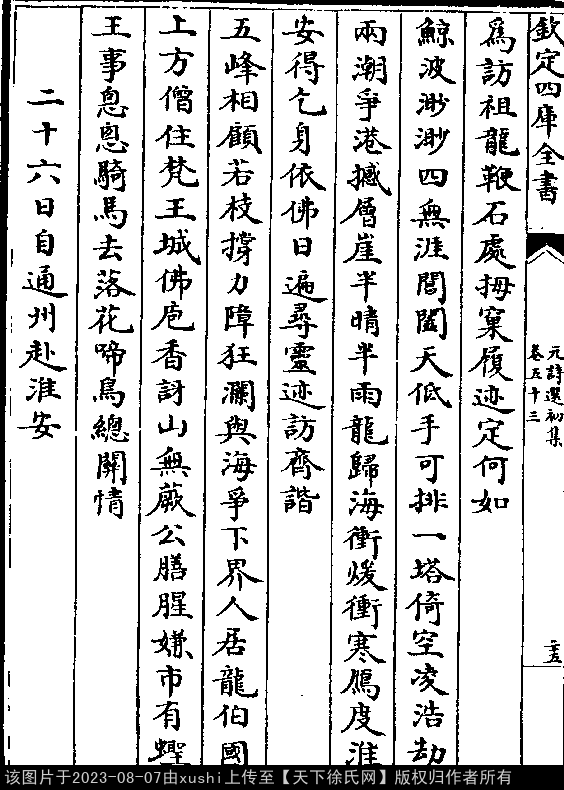 欽定四庫全書
元詩選初集
卷五十三
二十五
為訪祖龍鞭石處拇窠履迹定何如
鯨波渺渺四無涯閶闔天低手可排一塔倚空凌浩劫
兩潮爭港撼層崖半晴半雨龍歸海衝煖衝寒鴈度淮
安得乞身依佛日遍尋靈迹訪齊諧
五峰相顧若枝撐力障狂瀾與海爭下界人居龍伯國
上方僧住梵王城佛庖香訝山無蕨公膳腥嫌市有蟶
王事悤悤騎馬去落花啼鳥總關情
二十六日自通州赴淮安
该图片于2023-08-07由xushi上传至【天下徐氏网】版权归作者所有